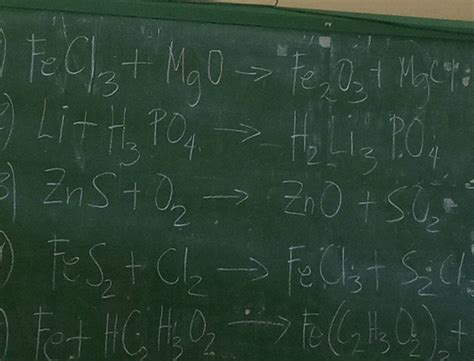 ) FeCl₃ + MgO → Fe₂O₃ + MgCl
2) Li + H₃PO₄ → H₂ Li₃PO₄
3) ZnS + O₂ → ZnO + SO₂
) FeS₂ + Cl₂ → FeCl₃ + S₂Cl
) Fe + HC₂H₃O₂ → Fe(C₂H₃O₂)₂ +